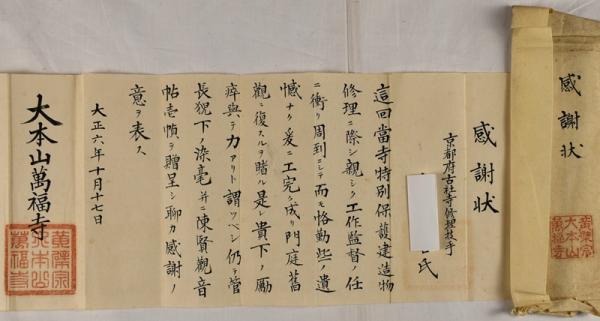 感謝状
黄檗宗
大本山
萬福寺
感謝状
京都府古社寺修理技手
氏
這回當寺特別保護建造物
修理ニ際シ親シク工作監督ノ任
ニ衝リ周到ニシテ而モ恪勤些ノ遺
憾ナク爰ニ工完ク成リ門庭舊
觀ニ復スルヲ睹ル是レ貴下ノ勵
瘁與テ力アリト謂ツベシ仍テ管
長猊下ノ染毫并ニ陳賢觀音
帖壱幀ヲ贈呈シ聊カ感謝ノ
意ヲ表ス
大正六年十月十七日
大本山萬福寺
黄檗宗
大本山
萬福寺